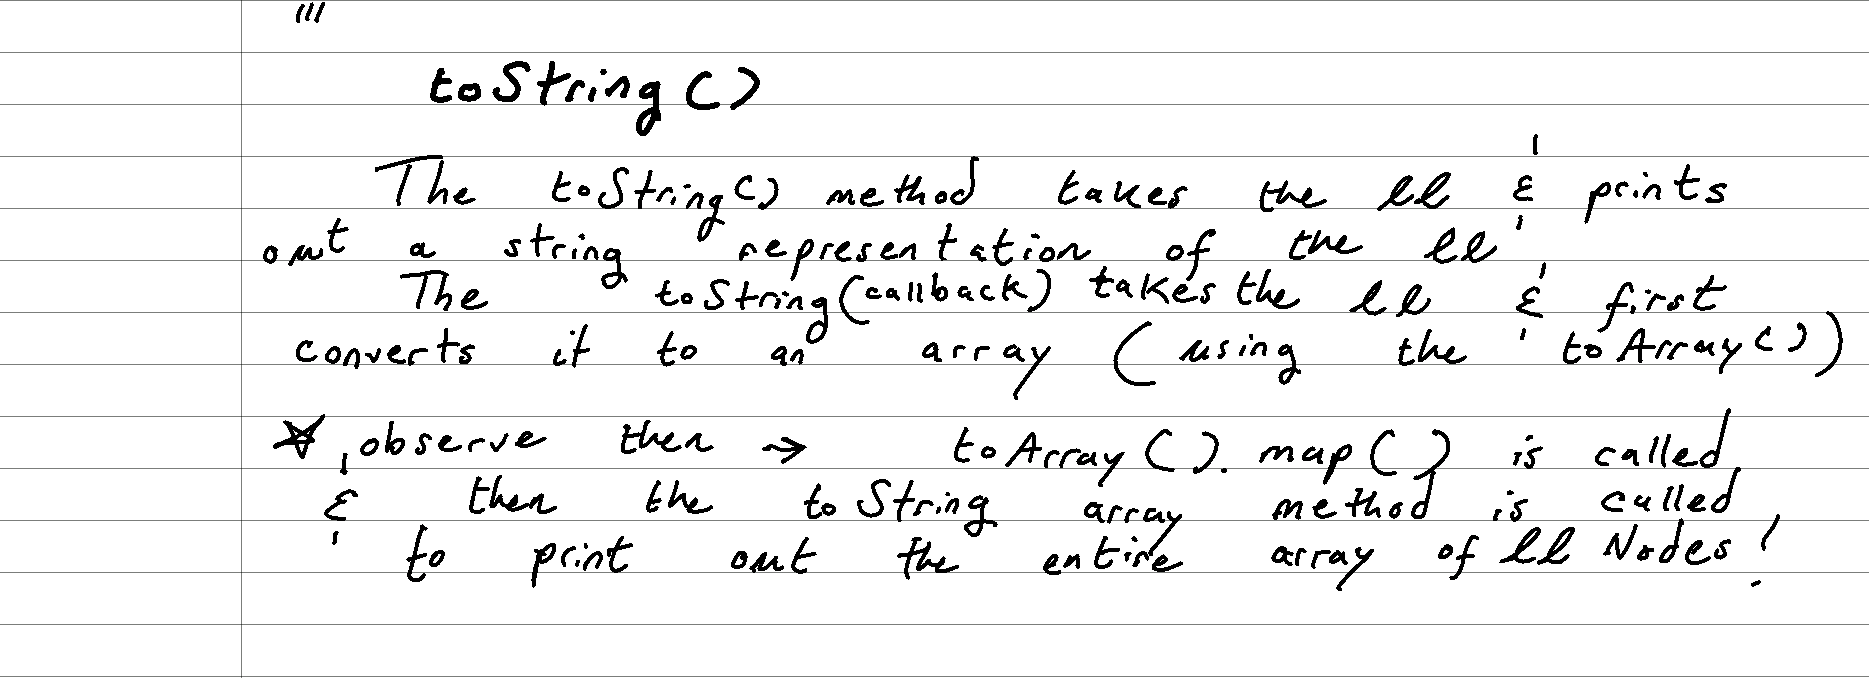 toString()
The toString() method takes the ll & prints
out a string representation of the ll
The toString(callback) takes the ll & first
converts it to an array (using the toArray())
☆ observe then → toArray().map() is called
& then the toString array method is called
to print out the entire array of ll Nodes!